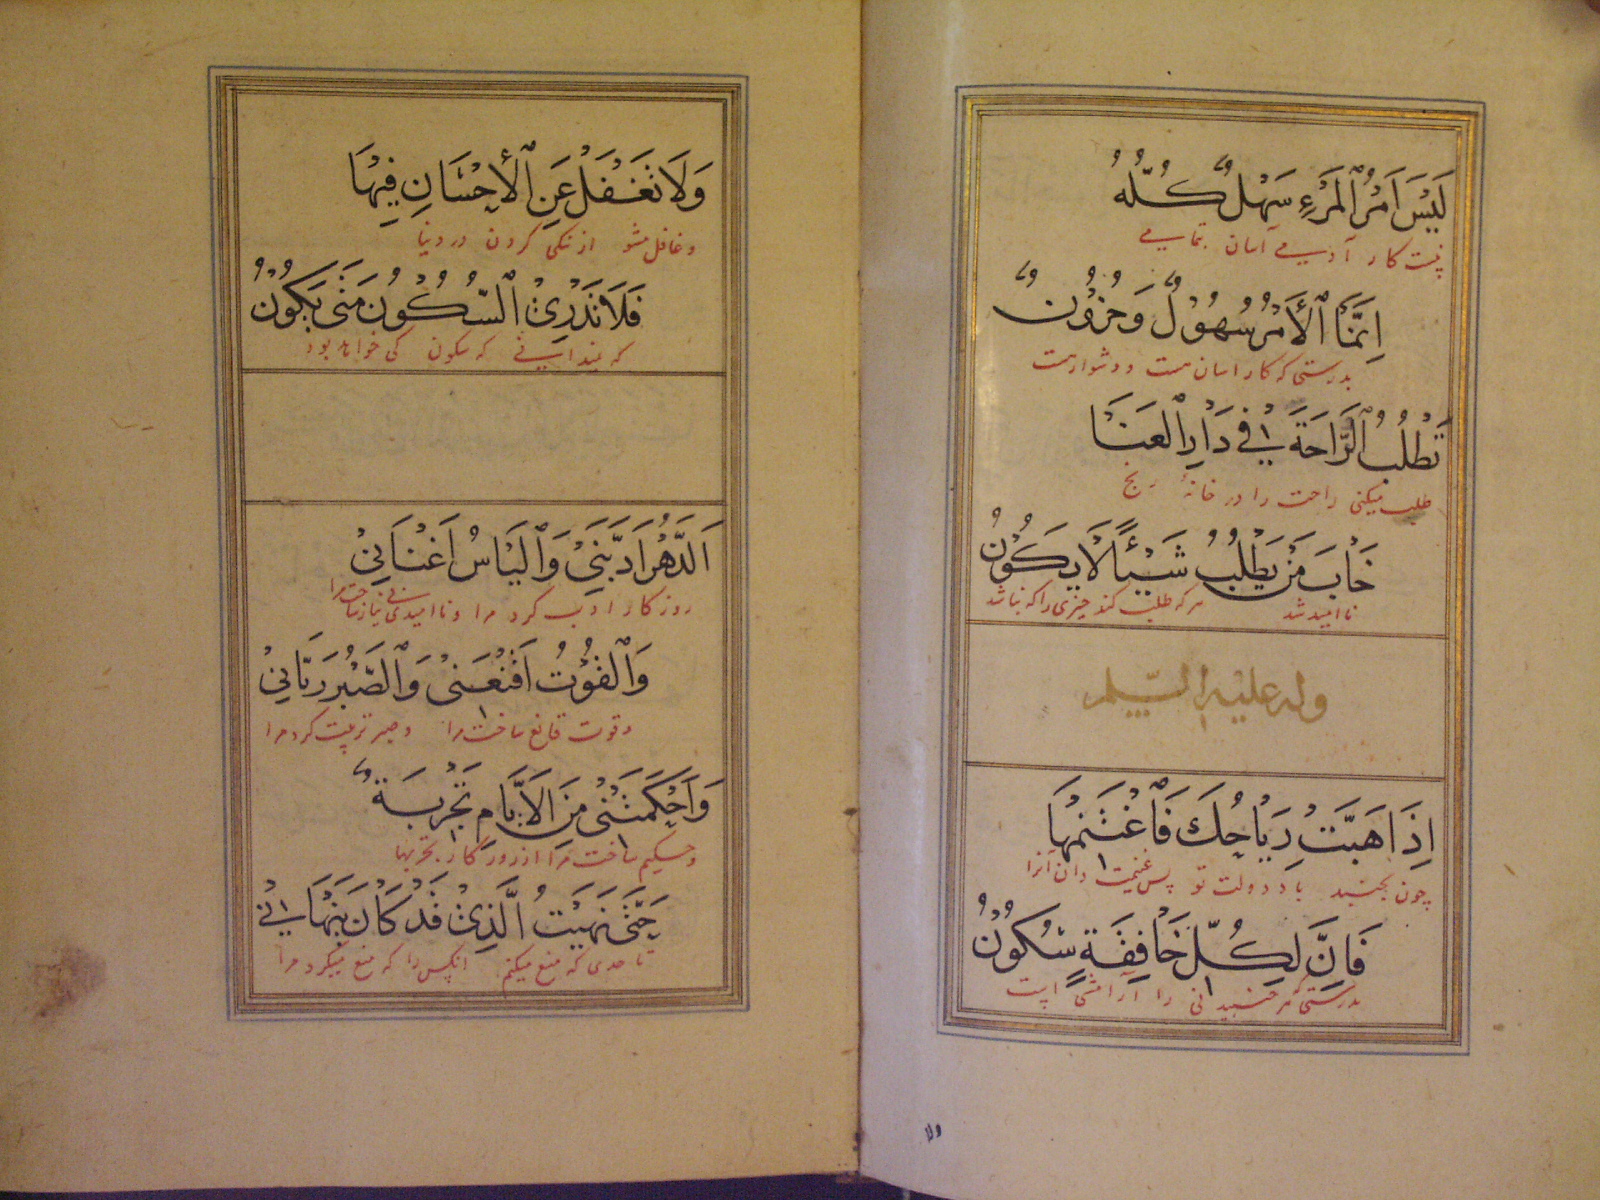 لَيْسَ اَمْرُ ٱلْمَرْءِ سَهْلٌ كُلُّهُ
نیست کار آدمی اسان بتمامی
اِنَّمَا ٱلْأَمْرُ سُهُوْلٌ وَحُزُوْنٌ
بدرستی که کار اسان هست و دشوار هست
تَطْلُبُ ٱلرَّاحَةَ فِيْ دَارِ ٱلعَنَا
طلب میکنی راحت را در خانهٔ رنج
خَابَ مَنْ يَطْلُبُ شَيْئًا لَا يَكُوْنُ
نا امید شد هر که طلب کند چیزی را که نباشد
وله عليه السّلم
اِذَا هَبَّتْ رِيَاحُكَ فَٱغْتَنِمْهَا
چون بجنبد باد دولت تو پس غنیمت دان آنرا
فَاِنَّ لِكُلِّ خَافِقَةٍ سُكُوْنُ
بدرستی که هر جنبیدنی را آرامشی است
ولا
وَلَا تَغْفَلْ عَنِ ٱلْأِحْسَانِ فِيْهَا
و غافل مشو از نیکی کردن در دنیا
فَلَا تَدْرِيْ ٱلسُّكُوْنُ مَتٰى يَكُوْنُ
که ندانی که سکون کی خواهد بود
اَلدَّهْرُ اَدَّبَنِيْ وَٱلْيَاْسُ اَغْنَانِيْ
روزکار ادب کرد مرا و نا امیدی بی نیاز ساخت مرا
وَٱلْقُوْتُ اَقْنَعَنِيْ وَٱلصَّبْرُ رَبَّانِيْ
و قوت قانع ساخت مرا و صبر تربیت کرد مرا
وَاَحْكَمَتْنِيْ مِنَ ٱلْاَيَّامِ تَجْرُبَةٌ
و حکیم ساخت مرا از روزکار تجربها
حَتّٰى نَهَيْتُ ٱلَّذِيْ قَدْ كَانَ يَنْهَانِيْ
تا حدی که منع میکنم انکس را که منع میکرد مرا